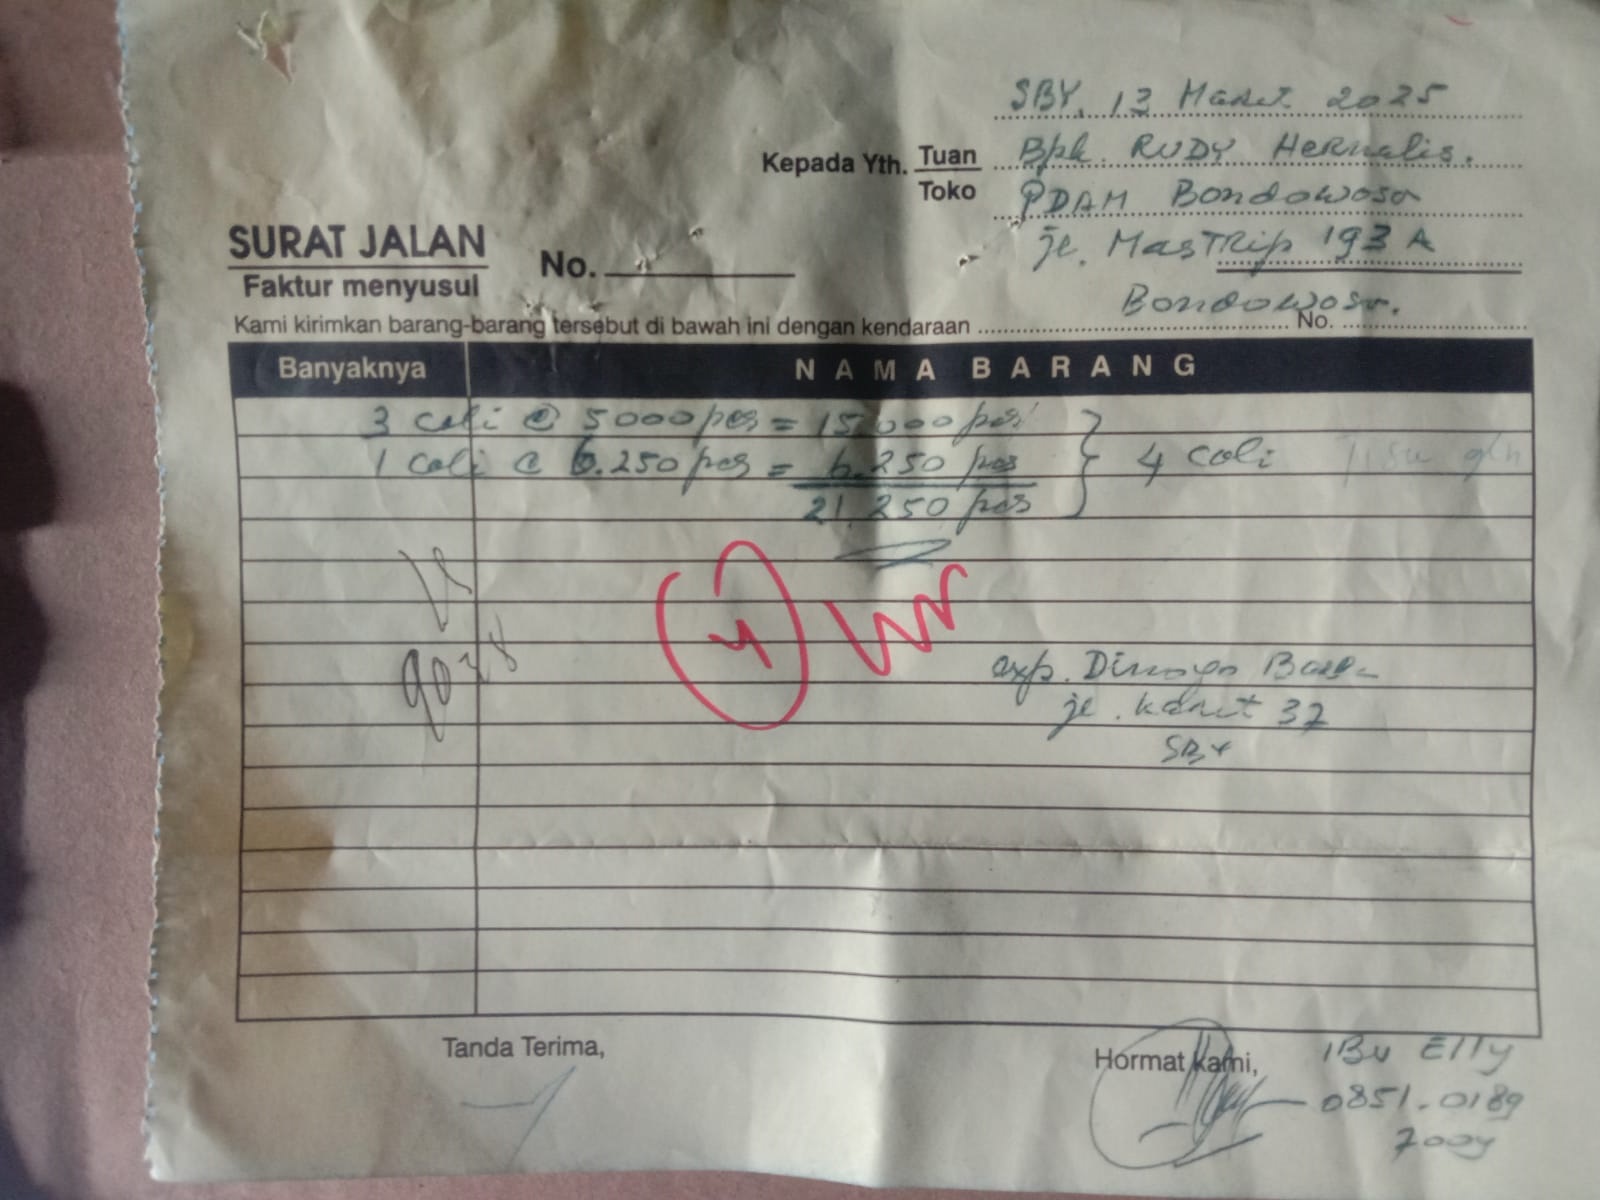 SBY. 13 Maret 2025
Kepada Yth. Tuan Bpk. RUDY Hernalis.
Toko PDAM Bondowoso
SURAT JALAN jl. MasTRip 193 A
Faktur menyusul No. Bondowoso.
Kami kirimkan barang-barang tersebut di bawah ini dengan kendaraan No.
Banyaknya NAMA BARANG
3 coli @ 5000 pcs = 15.000 pcs
1 coli @ 6.250 pcs = 6.250 pcs 4 coli
21.250 pcs
4
exp. Baru
jl. Karet 37
SBY
Tanda Terima, Hormat kami, IBu Elly
0851.0189
7004